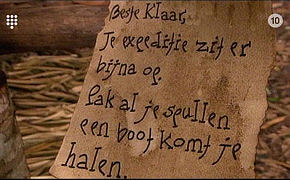 Beste Klaas,
Je expeditie zit er
bijna op.
Pak al je spullen
een boot komt je
halen.
10